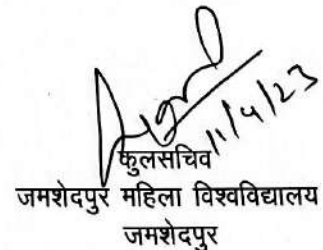 11/4/23
कुलसचिव
जमशेदपुर महिला विश्वविद्यालय
जमशेदपुर